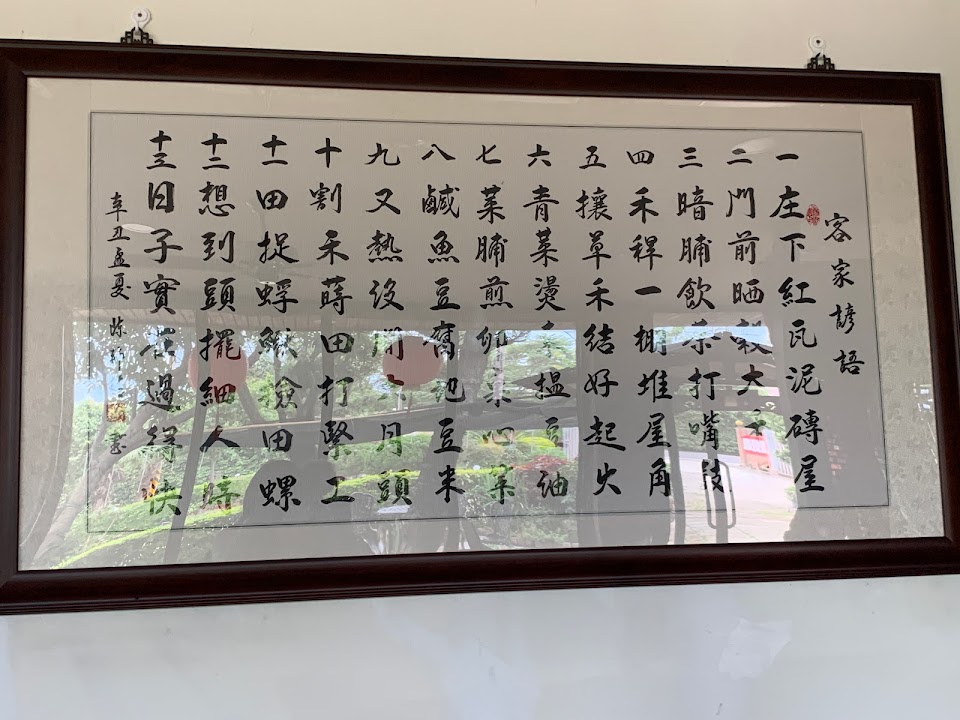 客家諺語
一庄下紅瓦泥磚屋
二門前晒穀大禾
三暗脯飲茶打嘴鼓
四禾稈一棚堆屋角
五攘草禾結好起火
六青菜燙 搵豆油
七菜脯煎卵菜心菜
八鹹魚豆腐 豆米
九又熱又 六月頭
十割禾蒔田打緊工
十一田捉蜉鰍撿田螺
十二想到頭擺細人時
十三日子實在過得快
辛丑孟夏